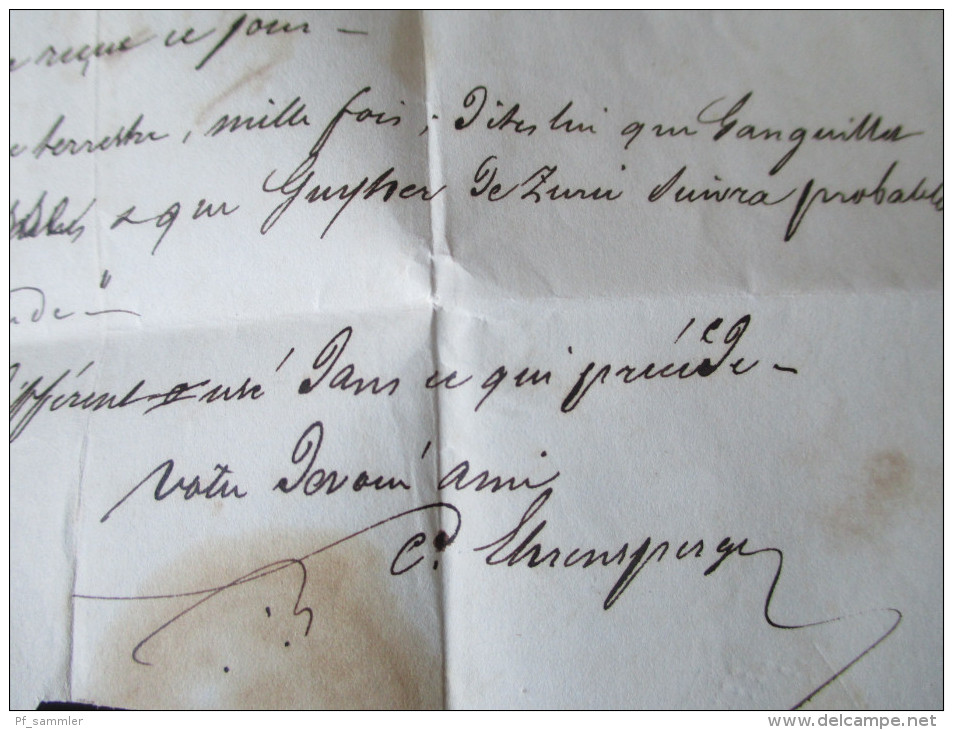 reçue ce jour —
terrestre, mille fois, Dites lui que Ganguillet
& que Guyher de Zuric suivra probable
différent usé dans ce qui précède —
votre dévoué ami
Cd. Ehrensperger
Pf_sammler
www.delcampe.net